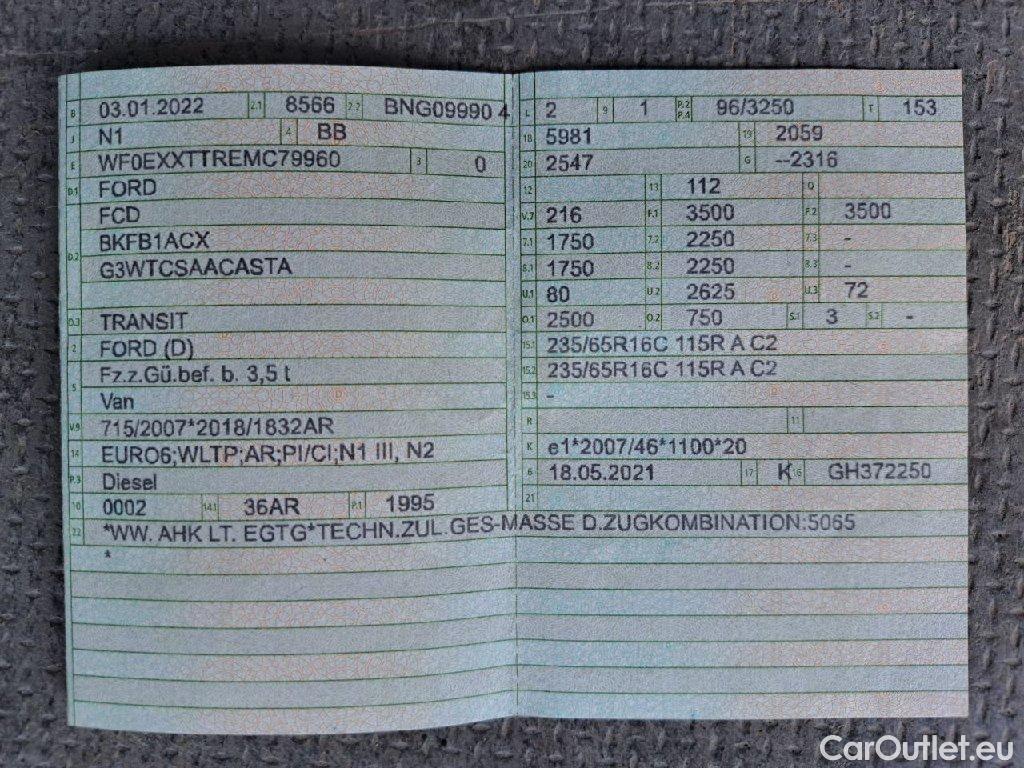 B 03.01.2022 2.1 8566 2.2 BNG09990 4
J N1 4 BB
E WF0EXXTTREMC79960 3 0
D.1 FORD
FCD
BKFB1ACX
D.2 G3WTCSAACASTA
D.3 TRANSIT
2 FORD (D)
5 Fz.z.Gü.bef. b. 3,5 t
Van
V.9 715/2007*2018/1832AR
14 EURO6;WLTP;AR;PI/CI;N1 III, N2
P.3 Diesel
10 0002 14.1 36AR P.1 1995
L 2 9 1 P.2 P.4 96/3250 T 153
18 5981 19 2059
20 2547 G --2316
12 13 112 Q
V.7 216 F.1 3500 F.2 3500
7.1 1750 7.2 2250 7.3 -
8.1 1750 8.2 2250 8.3 -
U.1 80 U.2 2625 U.3 72
O.1 2500 O.2 750 S.1 3 S.2 -
15.1 235/65R16C 115R A C2
15.2 235/65R16C 115R A C2
15.3 -
R 11
K e1*2007/46*1100*20
6 18.05.2021 17 K 16 GH372250
21
22 *WW. AHK LT. EGTG*TECHN.ZUL.GES-MASSE D.ZUGKOMBINATION:5065
*
CarOutlet.eu